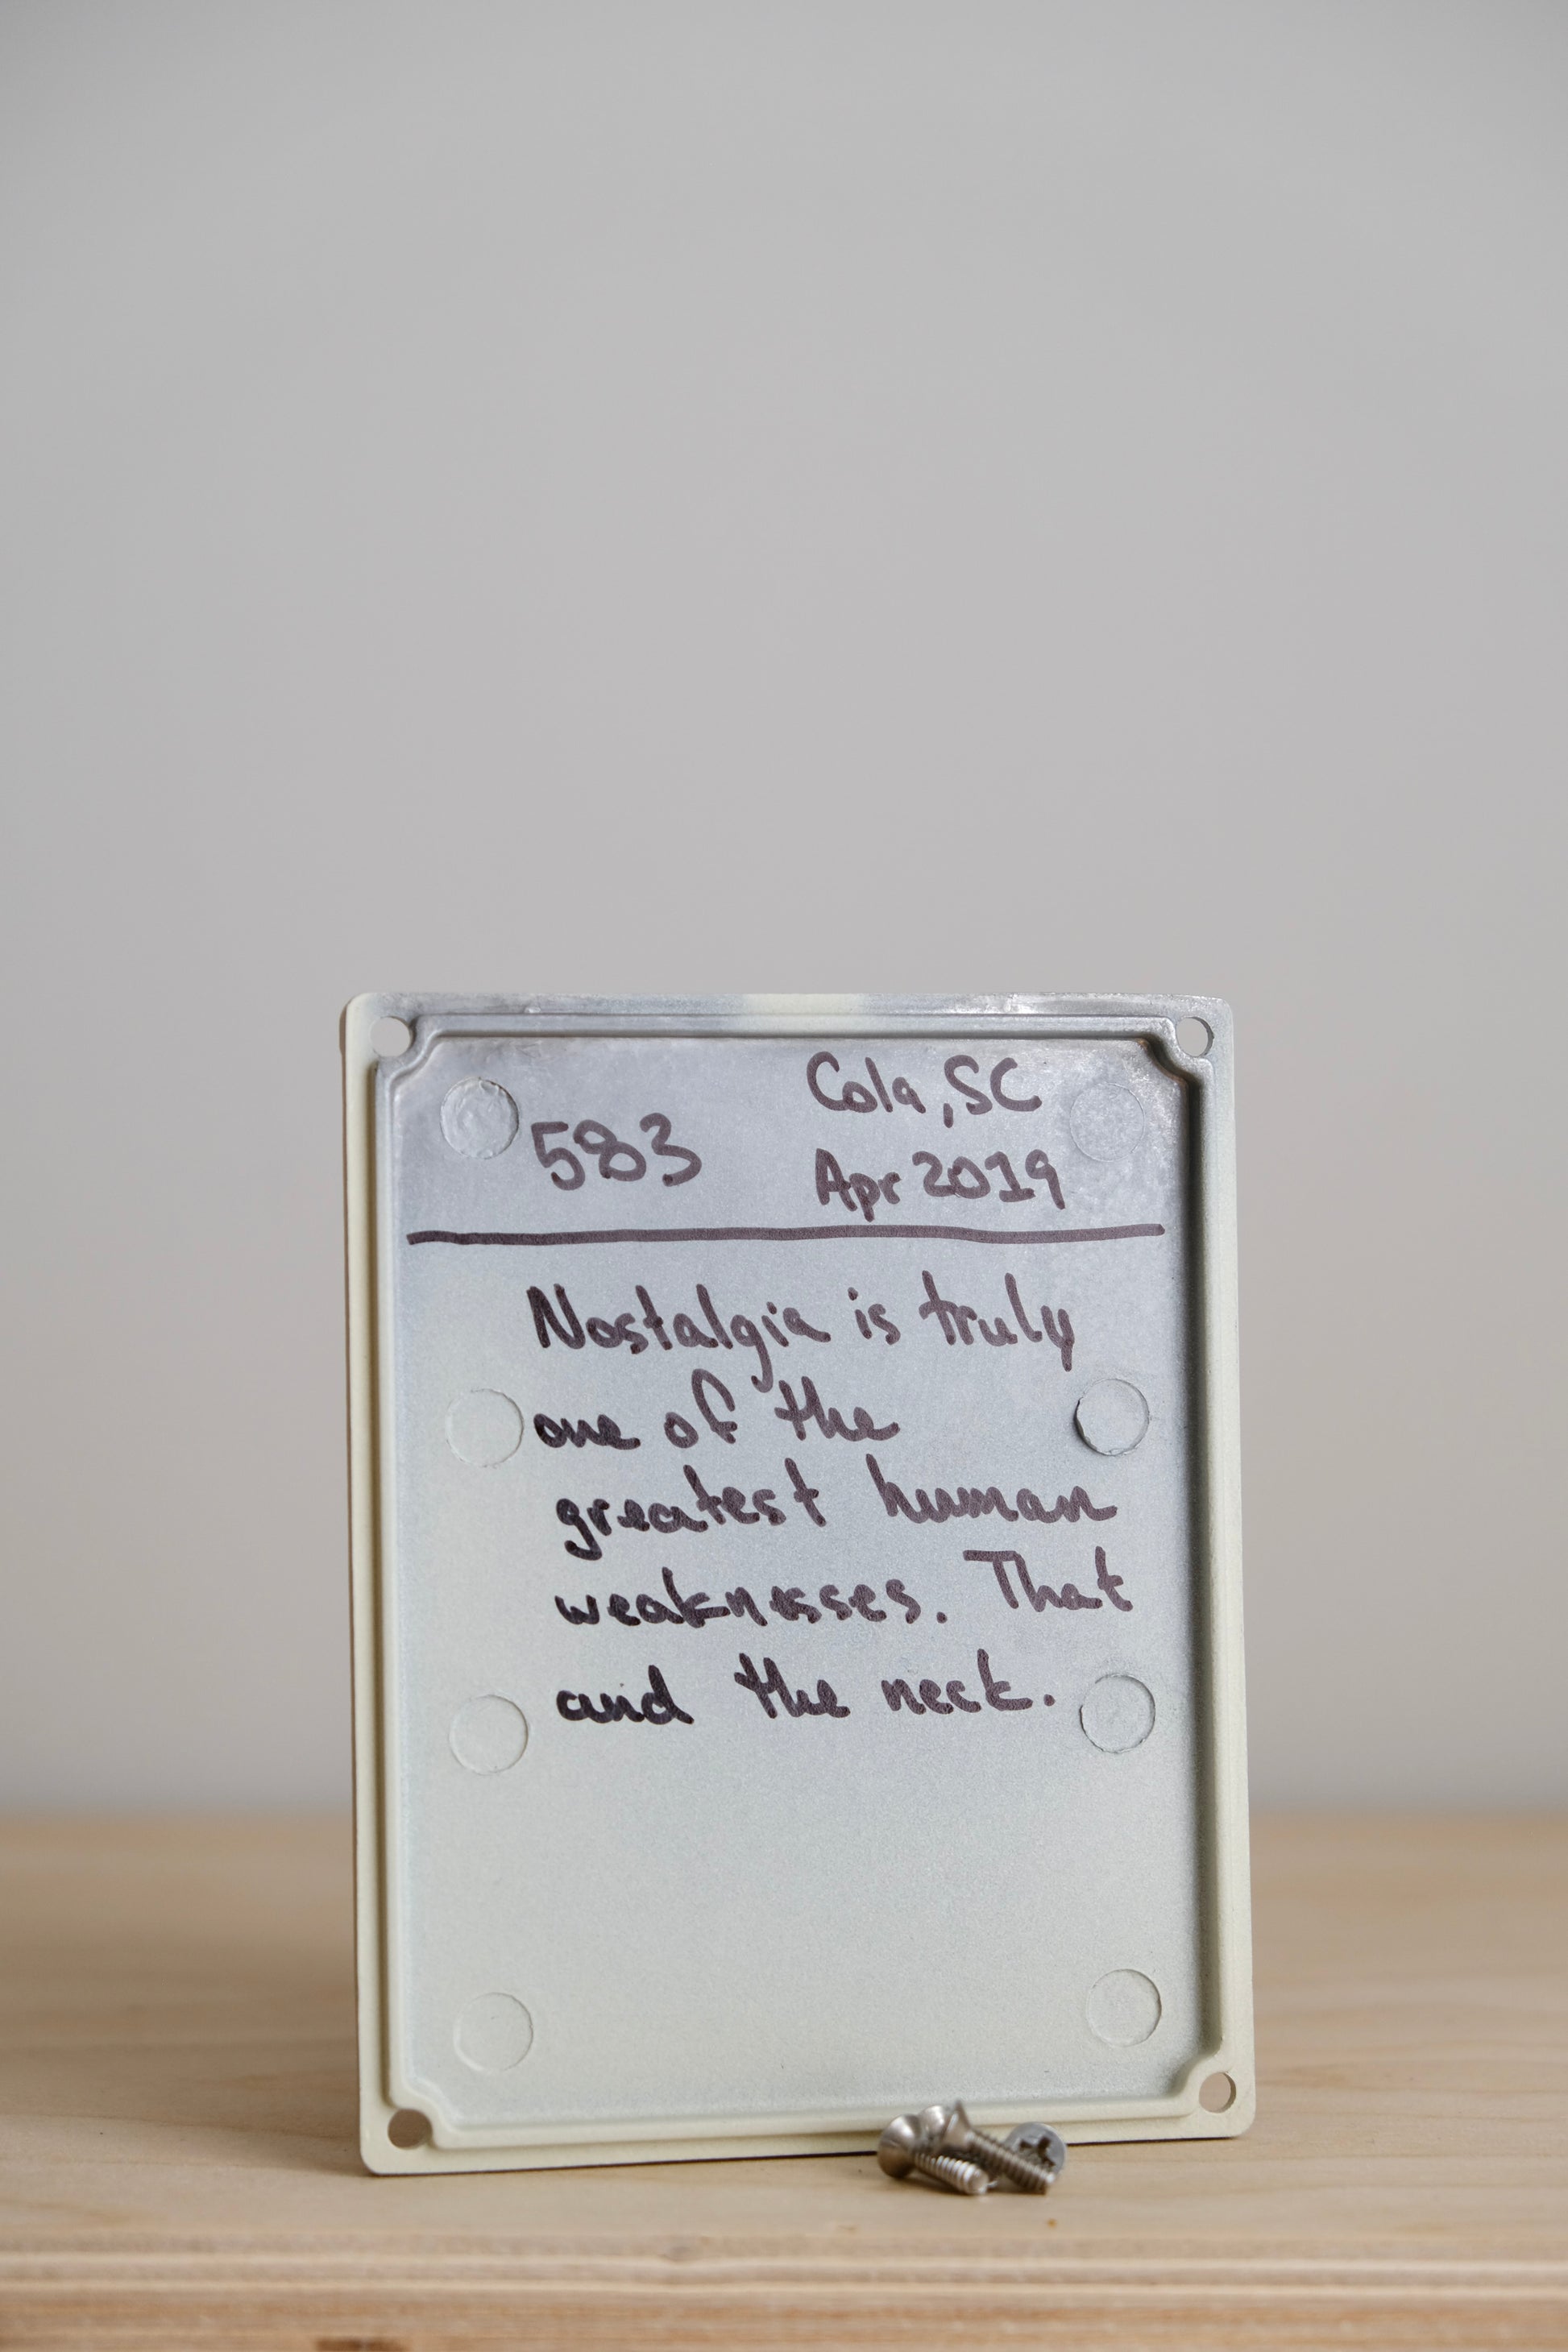 583
Cola, SC
Apr 2019
Nostalgia is truly
one of the
greatest human
weaknesses. That
and the neck.